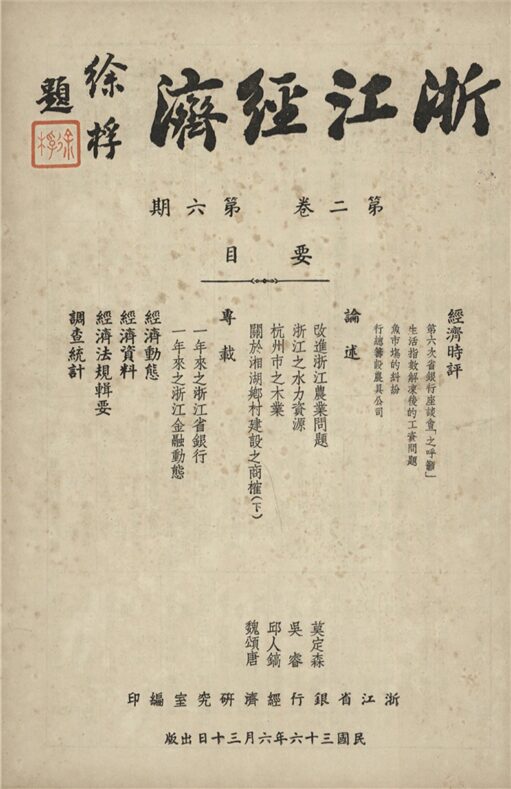 浙江經濟
徐桴
題
徐桴
第二卷 第六期
要目
經濟時評
第六次省銀行座談會「之呼籲」
生活指數解凍後的工資問題
魚市場的糾紛
行總籌設農具公司
論述
改進浙江農業問題 莫定森
浙江之水力資源 吳睿
杭州市之木業 邱人鎬
關於湘湖鄉村建設之商榷(下) 魏頌唐
專載
一年來之浙江省銀行
一年來之浙江金融動態
經濟動態
經濟資料
經濟法規輯要
調查統計
浙江省銀行經濟研究室編印
民國三十六年六月三十日出版